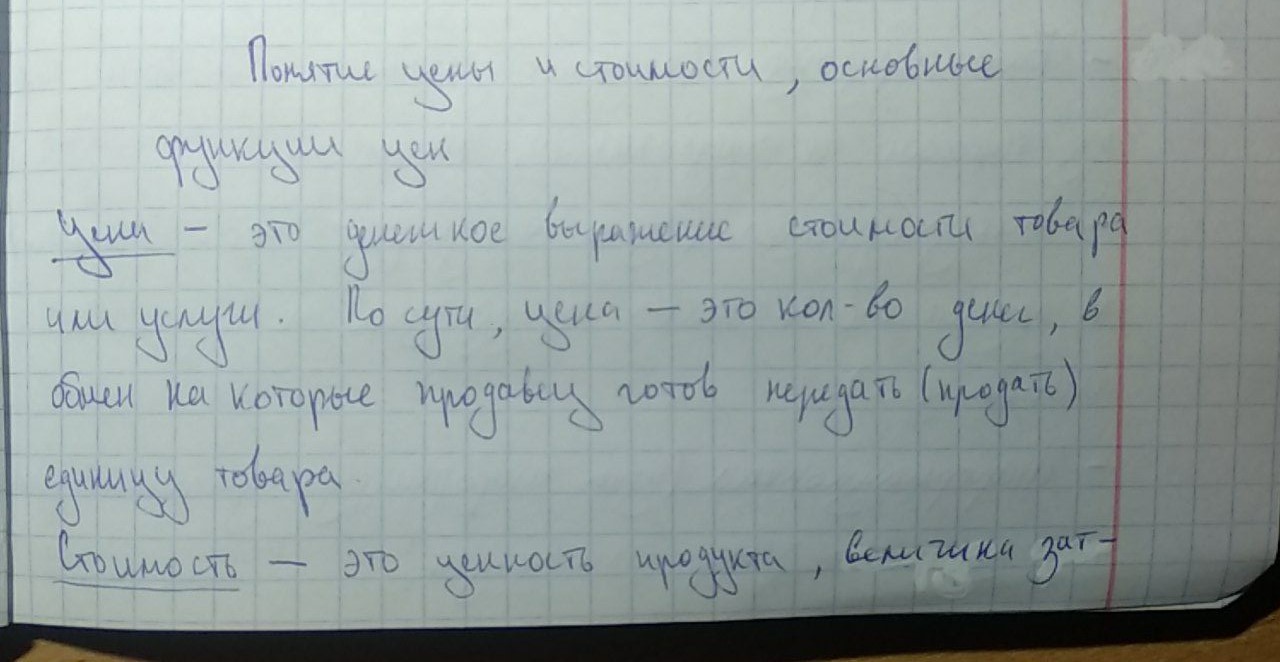 Понятие цены и стоимости, основные
функции цен
Цена – это денежное выражение стоимости товара
или услуги. По сути, цена – это кол-во денег, в
обмен на которые продавец готов передать (продать)
единицу товара.
Стоимость – это ценность продукта, величина зат-